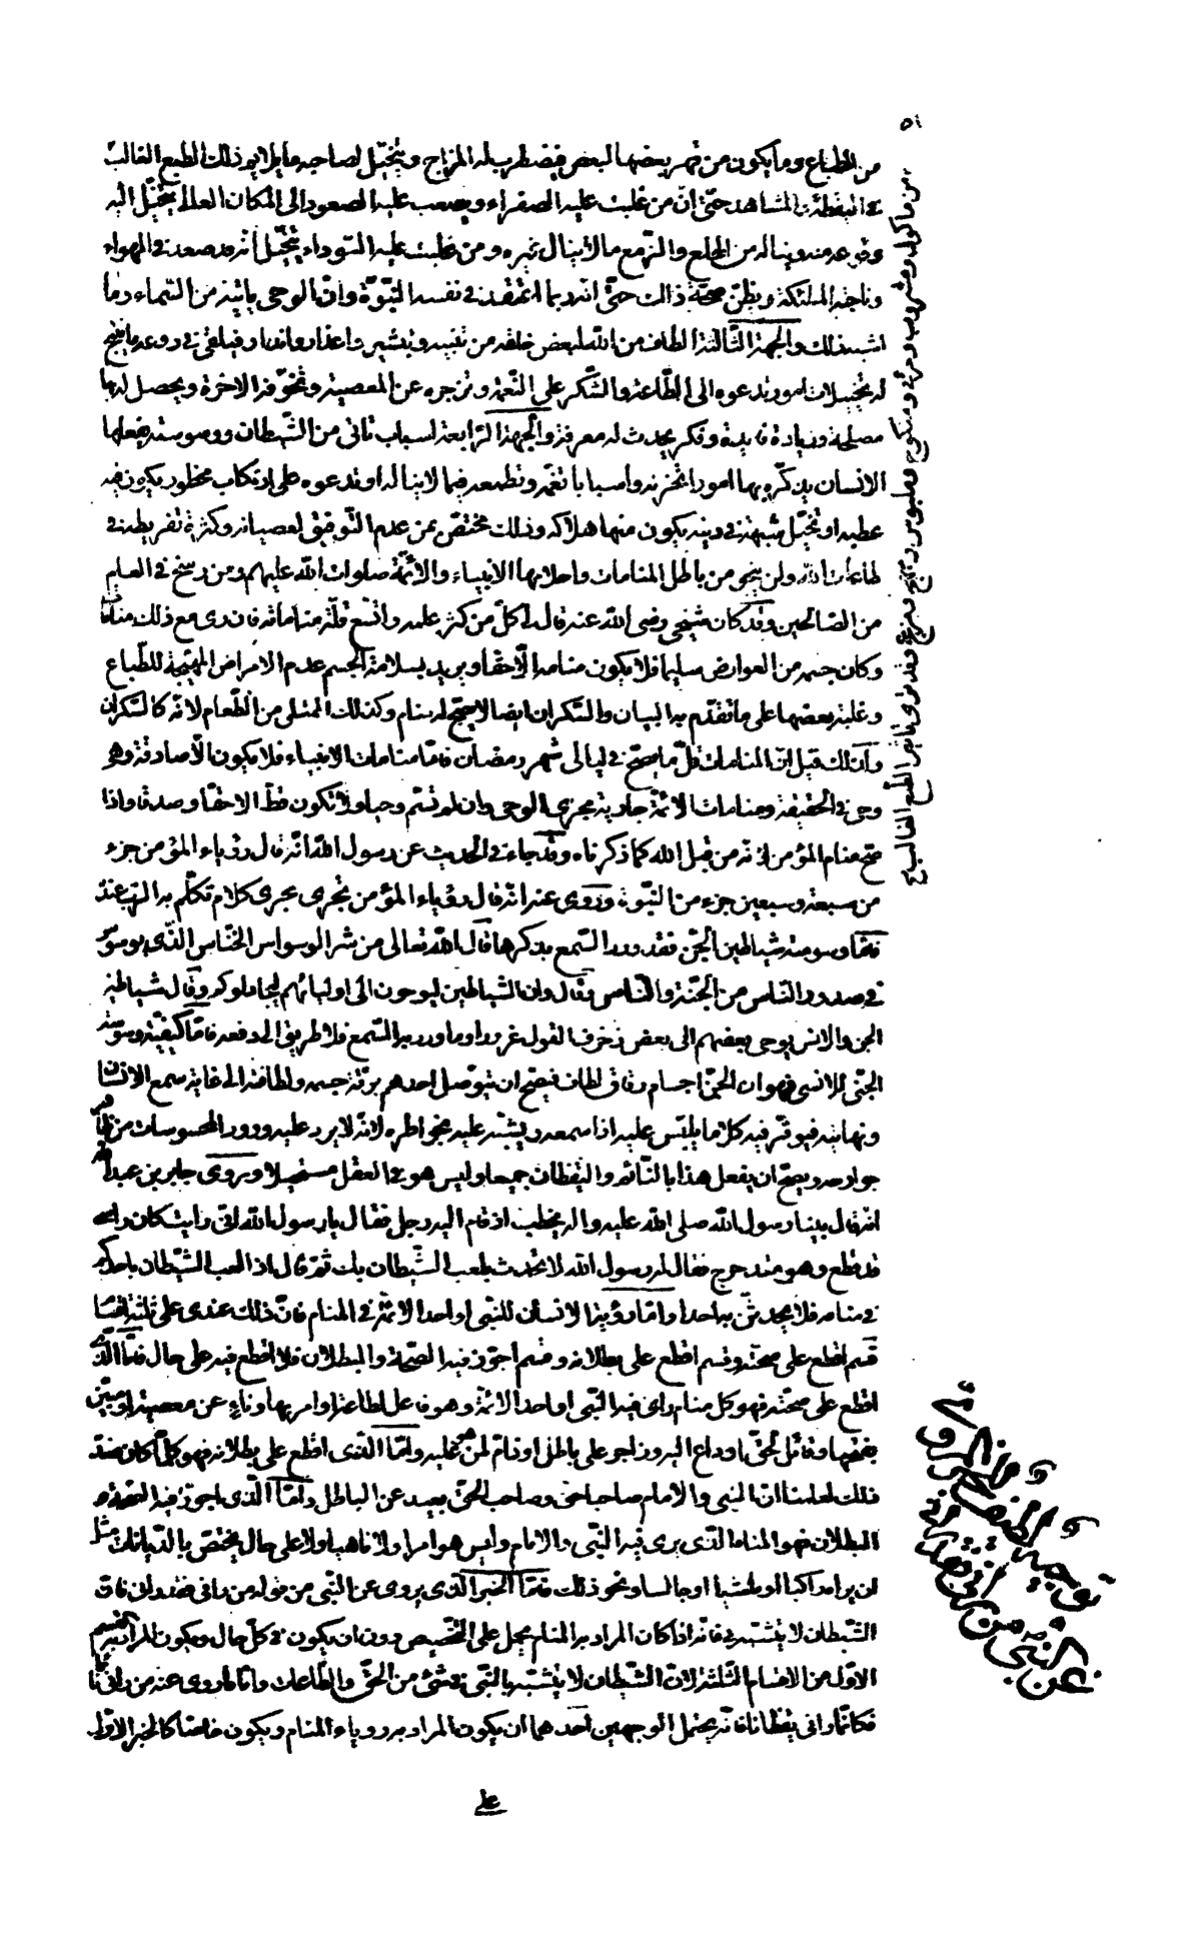 ٥١
من الطباع وما يكون من قهر بعضها لبعض فيضطرب له المزاج ويتخيّل لصاحبه ما يلايم ذلك الطبع الغالب
في اليقظة من المشاهد حتّى انّ من غلبت عليه الصفراء ويصعب عليه الصعود الى المكان العالى يتخيّل اليه
وقوعه منه ويناله من الهلع والزّمع ما لا ينال غيره ومن غلبت عليه السّوداء يتخيّل انّه قد صعد في الهواء
وناجته الملائكة ويظنّ صحّة ذلك حتّى انّه ربما اعتقد في نفسه النّبوّة وانّ الوحى ياتيه من السّماء وما
اشبه ذلك والجهة الثّالثة الطاف من الله لبعض خلقه من تنبيه وتبشير واعذار وانذار فيلقى في روعه ما ينتج
له تخييلات امور تدعوه الى الطّاعة والشّكر على النّعمة وتزجره عن المعصية وتخوّفه الاخرة ويحصل له بها
مصلحة وزيادة فايدة وفكر يحدث له معرفة والجهة الرّابعة اسباب تاتى من الشّيطان ووسوسة يفعلها
الانسان يذكّره بها امورا تحزنه واسبابا تغمّه وتطمعه فيما لا يناله او تدعوه على ارتكاب محظور يكون فيه
عطبه او تخيّل شبهة في دينه يكون منها هلاكه وذلك مختصّ بمن عدم التّوفيق لعصيانه وكثرة تفريطه في
طاعات الله ولن ينجو من باطل المنامات واحلامها الا الانبياء والائمّة صلوات الله عليهم ومن رسخ في العلم
من الصّالحين وقد كان شيخى رضى الله عنه قال لى كلّ من كثر علمه واتّسع قلّة مناماته فان رى مع ذلك مناما
وكان جسمه من العوارض سليما فلا يكون منامه الّا حقّا ويريد بسلامة الجسم عدم الامراض المهيّجة للطّباع
وغلبة بعضها على ما تقدّم به البيان والسّكران ايضا لا يصحّ له منام وكذلك الممتلى من الطّعام لانّه كالسّكران
ولذلك قيل انّ المنامات قلّ ما يصحّ في ليالى شهر رمضان فامّا منامات الانبياء فلا يكون الّا صادقة وهى
وحى في الحقيقة ومنامات الائمّة جارية مجرى الوحى وان لم تسمّ وحيا ولا تكون قطّ الا حقّا وصدقا واذا
صحّ منام المؤمن لانّه من قبل الله كما ذكرناه وقد جاء في الحديث عن رسول الله انّه قال رؤياء المؤمن جزء
من سبعة وسبعين جزء من النّبوة وروى عنه انّه قال رؤياء المؤمن تجرى مجرى كلام تكلّم به الرّب عنده
فامّا وسوسة شياطين الجنّ فقد ورد السّمع بذكرها قال الله تعالى من شر الوسواس الخنّاس الّذى يوسوس
في صدور النّاس من الجنّة والنّاس وقال وان الشّياطين ليوحون الى اوليائهم ليجادلوكم وقال شياطين
الجن والانس يوحى بعضهم الى بعض زخرف القول غرورا وما ورد به السّمع فلا طريق الى دفعه فامّا كيفيّة وسوسة
الجنّى للانسى فهو ان الجنّ اجسام رقاق لطاف فيصحّ ان يتوصّل احدهم برقّة جسمه ولطافته الى غاية سمع الانسان
ونهايته فيوقر فيه كلاما يلبّس عليه اذا سمعه ويشبّه عليه بخواطره لانّه لا يرد عليه ورود المحسوسات من ظاهر
جوارحه ويصحّ ان يفعل هذا بالنّائم واليقظان جميعا وليس هو في العقل مستحيلا وروى جابر بن عبد الله
انّه قال بينا رسول الله صلى الله عليه واله يخطب اذ قام اليه رجل فقال يا رسول الله انّى رايت كان راسى
قد قطع وهو متدحرج فقال له رسول الله لا تحدّث بلعب الشّيطان بك ثمّ قال اذا لعب الشّيطان باحدكم
في منامه فلا يحدّثنّ به احدا وامّا رؤية الانسان للنّبى او احد الائمّة في المنام فانّ ذلك عندى على ثلثة اقسام
قسم اقطع على صحّته وقسم اقطع على بطلانه وقسم اجوّز فيه الصّحّة والبطلان فلا اقطع فيه على حال فامّا الّذى
اقطع على صحّته فهو كل منام راى فيه النّبى او احد الائمّة وهو فاعل لطاعة او امر بها وناه عن معصية او مبيّن
بقبحها وقائل لحقّ او داع اليه وزاجر على باطل او ذام لمن هو عليه وامّا الّذى اقطع على بطلانه فهو كلّما كان ضدّ
ذلك لعلمنا انّ النبى والامام صاحبا حق وصاحب الحقّ بعيد عن الباطل وامّا الّذى اجوّز فيه الصّحّة و
البطلان فهو المنام الّذى يرى فيه النّبى والامام وليس هو امرا ولا ناهيا ولا على حال يختصّ بالدّيانات مثل
ان يراه راكبا او ماشيا او جالسا ونحو ذلك فامّا الخبر الّذى يروى عن النّبى من قوله من رانى فقد رانى فان
الشّيطان لا يتشبّه بى فانّه اذا كان المراد به المنام يحمل على التّخصيص دون ان يكون في كلّ حال ويكون المراد به القسم
الاوّل من الاقسام الثّلثة لانّ الشّيطان لا يتشبّه بالنّبى في شئ من الحقّ والطّاعات وامّا ما روى عنه من رانى نائما
فكانّما رانى يقظانا فانّه يحتمل الوجهين احدهما ان يكون المراد به رؤياء المنام ويكون خاصّا كالخبر الاوّل
على
من ماكول ومشروب ومرئى ومنكوح وملبوس ومبهج ومزعج فقد نرى تاثير الطّبع الغالب
توجيه
عن النّبى من